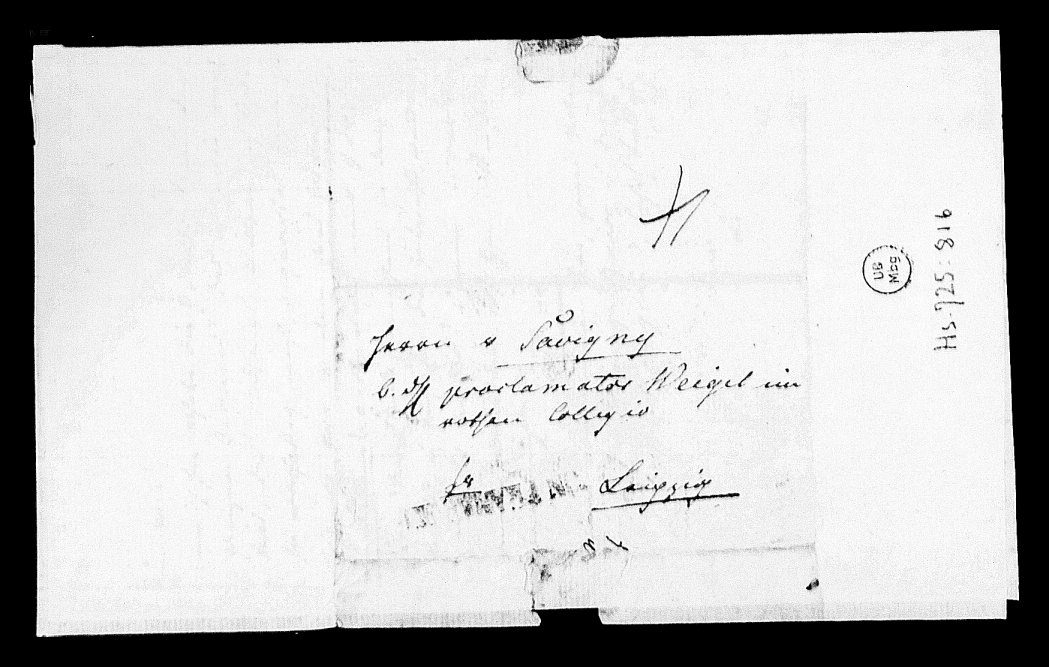 Herrn v Savigny
b. H proclamator Weigel im
rothen Collegio
fr
Leipzig
UB
Mbg
Hs. 725: 816